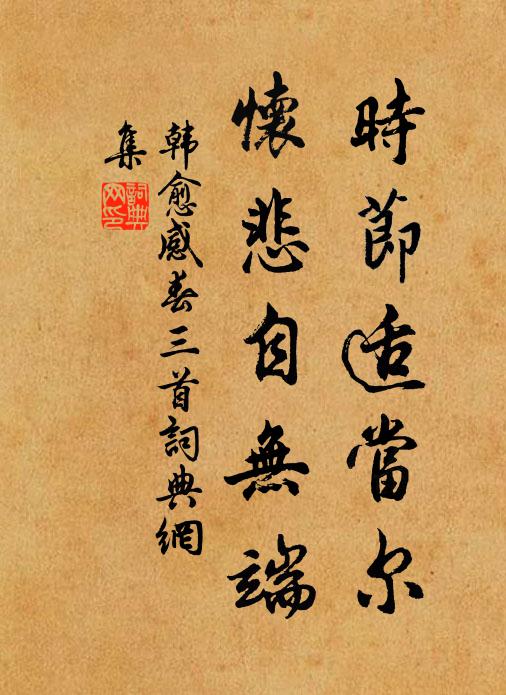 時節适當尔
懷悲自無端
韩愈感春三首詞典網
集
詞典网印